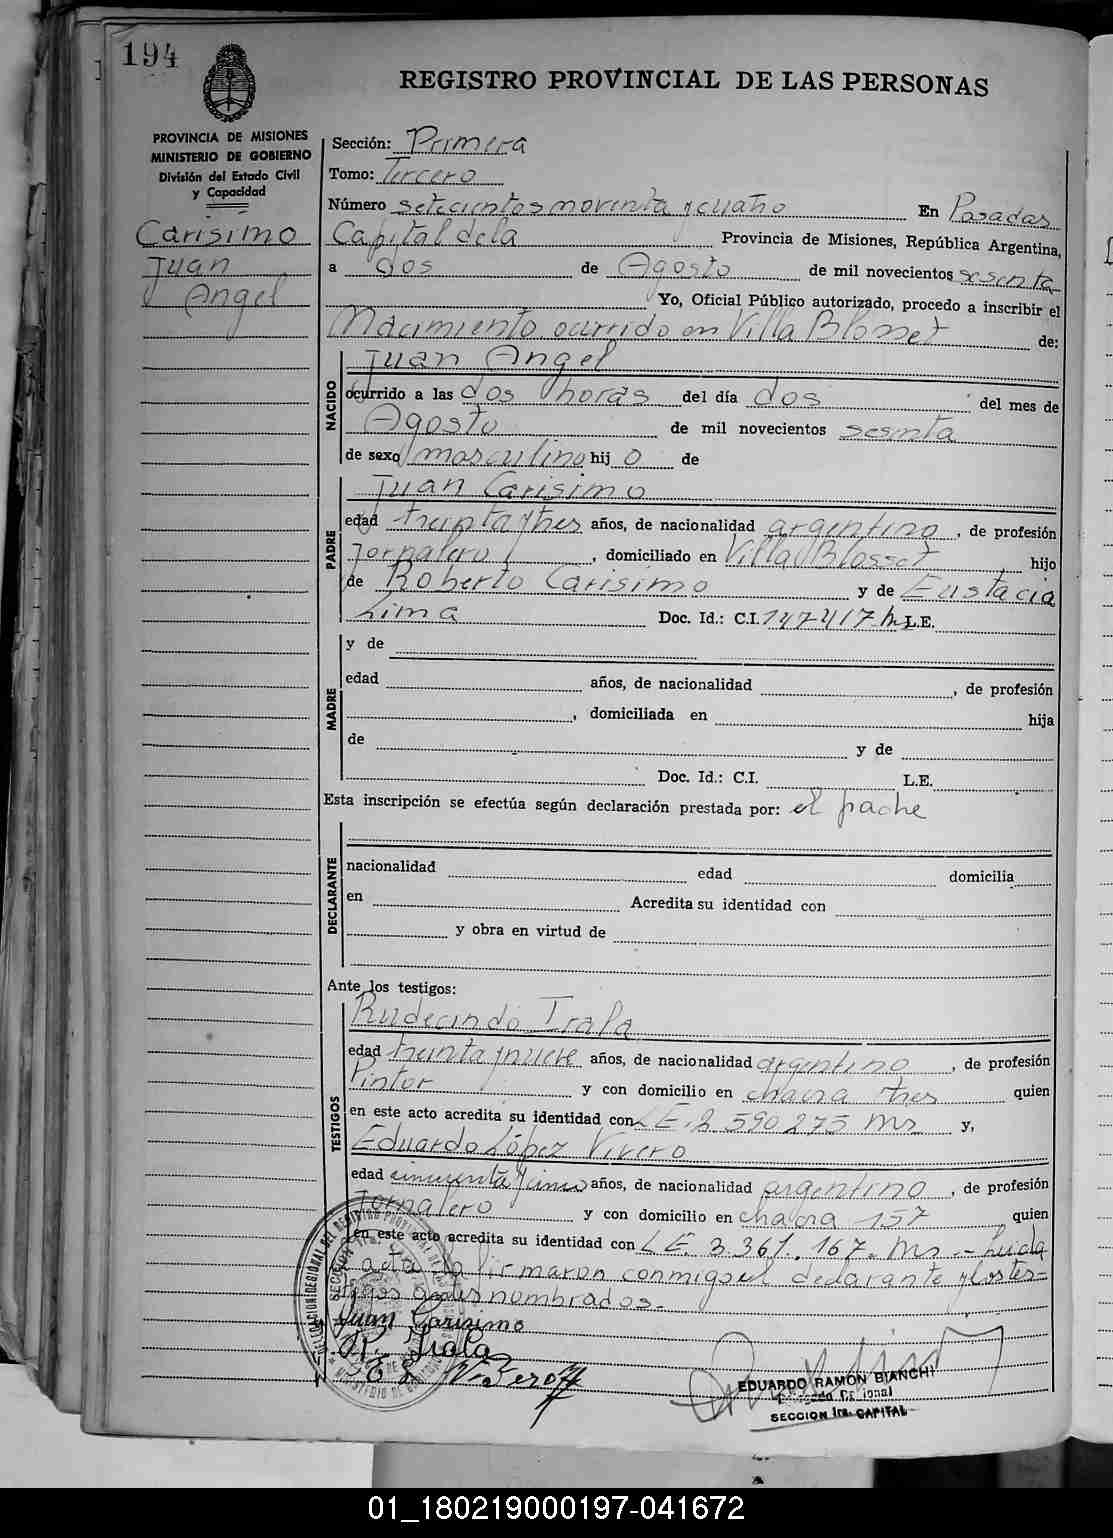 194
REGISTRO PROVINCIAL DE LAS PERSONAS
PROVINCIA DE MISIONES
MINISTERIO DE GOBIERNO
División del Estado Civil
y Capacidad
Carisimo
Juan
Angel
Sección: Primera
Tomo: Tercero
Número setecientos noventa y cuatro En Posadas
Capital de la Provincia de Misiones, República Argentina,
a dos de Agosto de mil novecientos sesenta
Yo, Oficial Público autorizado, procedo a inscribir el
Nacimiento ocurrido en Villa Blosset de:
NACIDO
Juan Angel
ocurrido a las dos horas del día dos del mes de
Agosto de mil novecientos sesenta
de sexo masculino hij o de
PADRE
Juan Carisimo
edad treinta y tres años, de nacionalidad argentino, de profesión
Jornalero, domiciliado en Villa Blosset hijo
de Roberto Carisimo y de Eustacia
Lima Doc. Id.: C.I. 147417 L.E.
MADRE
y de
edad años, de nacionalidad , de profesión
, domiciliada en hija
de y de
Doc. Id.: C.I. L.E.
Esta inscripción se efectúa según declaración prestada por: el padre
DECLARANTE
nacionalidad edad domicilia
en Acredita su identidad con
y obra en virtud de
Ante los testigos:
TESTIGOS
Rudecindo Irala
edad treinta y nueve años, de nacionalidad argentino, de profesión
Pintor y con domicilio en chacra tres quien
en este acto acredita su identidad con L.E. 2.590.275 Ms y,
Eduardo López Vivero
edad cincuenta y cinco años, de nacionalidad argentino, de profesión
Jornalero y con domicilio en chacra 157 quien
en este acto acredita su identidad con L.E. 3.361.167. Ms .- Leida
el acta la firmaron conmigo el declarante y los tes-
tigos nombrados.-
Juan Carisimo
R. Irala
E L Vivero
EDUARDO RAMON BIANCHI
SECCION 1ra. CAPITAL
01_180219000197-041672